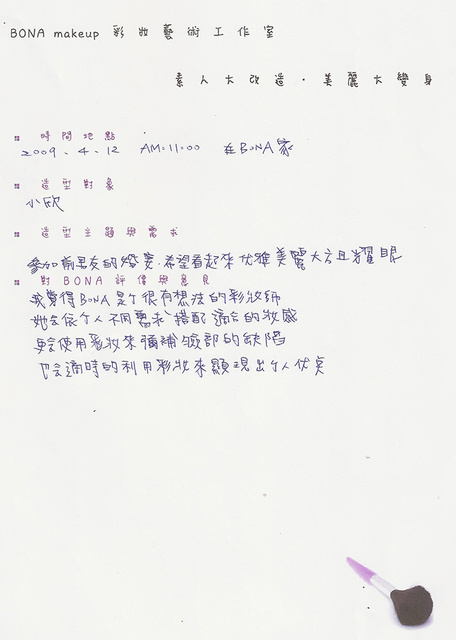 BONA makeup 彩妝藝術工作室
素人大改造．美麗大變身
時間地點
2009、4、12 AM:11:00 在BONA家
造型對象
小欣
造型主題與需求
參加前男友的婚宴．希望看起來優雅美麗大方且耀眼
對BONA評價與意見
我覺得BONA是個很有想法的彩妝師
她會依個人不同需求搭配適合的妝感
更會使用彩妝來彌補臉部的缺陷
也會適時的利用彩妝來顯現出個人優點